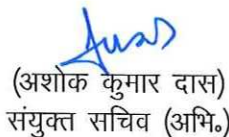 (अशोक कुमार दास)
संयुक्त सचिव (अभि०)